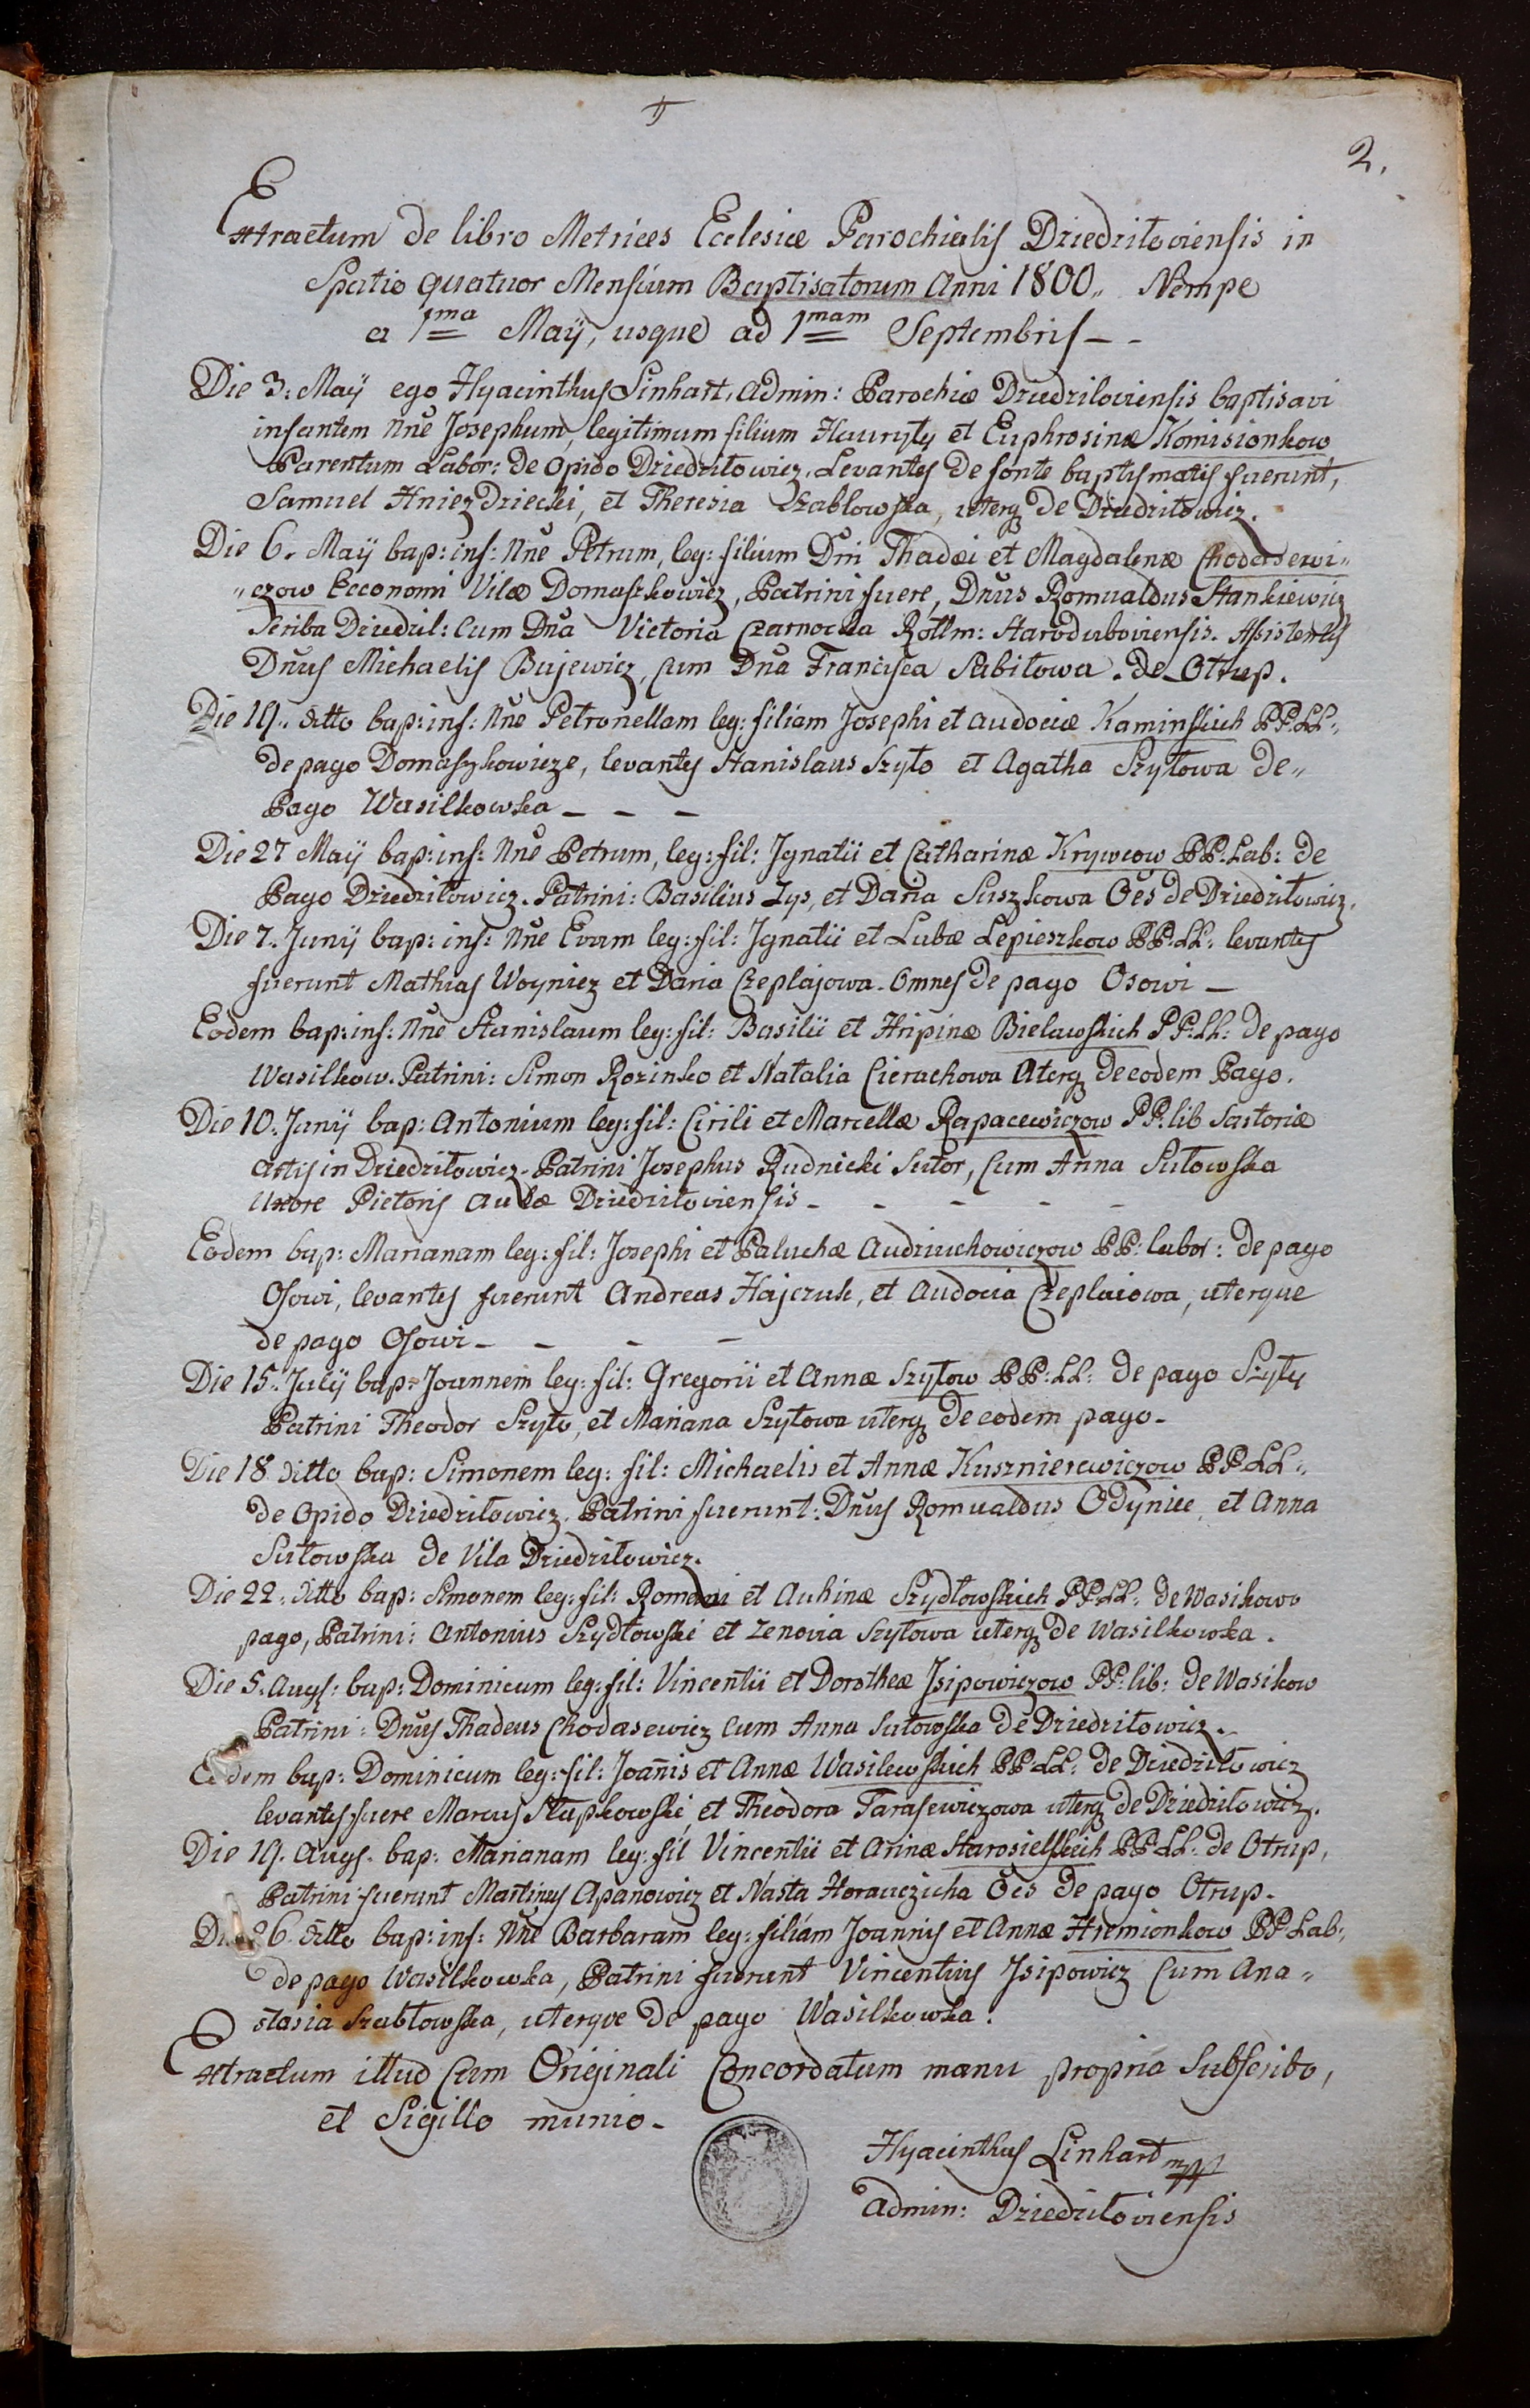 2.
Extractum de libro Metrices Eclesiæ Parochialis Dziedziłoviensis in
Spatio quatuor Mensium Baptisatorum Anni 1800„ Nempe
a 1ma Maÿ, usque ad 1mam Septembris - -
Die 3: Maÿ ego Hyacinthus Linhart, Admin: Parochiæ Dziedziloviensis baptisavi
infantem Nnē Josephum, legitimum filium Hauryły et Euphrosinæ Komisionkow
Parentum Labor: de Opido Dziedziłowicz. Levantes de fonte baptismatis fuerunt,
Samuel Hniezdziecki, et Theresia Szablowska, uterq de Dziedziłowicz.
Die 6. Maÿ bap: inf: Nnē Petrum, leg: filium Dni Thadæi et Magdalenæ Chodasewi„
„czow Eeconomi Vilæ Domaszkowicz, Patrini fuere, Dnus Romualdus Stankiewicz
Scriba Dziedzil: Cum Dna Victoria Czarnocka Rottm: Staroduboviensis. Asistentes
Dnus Michaelis Bujewicz, cum Dna Francisca Sabiłowa. de Otrup.
Die 19„ ditto bap: inf: Nnē Petronellam leg: filiam Josephi et Audociæ Kaminskich PP: LL:
de pago Domaszkowicze, levantes Stanislaus Szyło et Agatha Szyłowa de„
Pago Wasilkowka - - -
Die 27 Maÿ bap: inf: Nnē Petrum, leg: fil: Jgnatii et Catharinæ Krywcow PP: Lab: de
Pago Dziedziłowicz. Patrini: Basilius Zys, et Daria Suszkowa Oēs de Dziedziłowicz.
Die 7. Junÿ bap: inf: Nnē Evam leg: fil: Jgnatii et Lubæ Lepieszkow PP: LL: levantes
fuerunt Mathias Woyniez et Daria Czeplajowa. Omnes de pago Osowi -
Eodem bap: inf: Nnē Stanislaum leg: fil: Basilii et Hripinæ Bielawskich PP: LL: de pago
Wasilkow. Patrini: Simon Rozinko et Natalia Cierachowa Uterq de eodem Pago.
Die 10. Junÿ bap: Antonium leg: fil: Cirili et Marcellæ Rapacewiczow PP. lib Sartoriæ
Artis in Dziedziłowicz. Patrini Josephus Rudnicki Sutor, Cum Anna Sułowska
Uxore Pictoris Aulæ Dziedziłoviensis - - - - -
Eodem bap: Marianam leg: fil: Josephi et Paluchæ Audziuchowiczow PP: labor: de pago
Osowi, levantes fuerunt Andreas Hajczuk, et Audocia Czeplaiowa, uterque
de pago Osowi - - - -
Die 15. Julÿ bap: Joannem leg: fil: Gregorii et Annæ Szyłow PP: LL: de pago Szyły
Patrini Theodor Szyło, et Mariana Szyłowa uterq de eodem pago.
Die 18 ditto bap: Simonem leg: fil: Michaelis et Annæ Kusznierewiczow PP LL:
de Opido Dziedziłowicz. Patrini fuerunt: Dnus Romualdus Odyniec, et Anna
Sułowska de Vila Dziedziłowicz.
Die 22. ditto bap: Simonem leg: fil: Romani et Auhinæ Szydłowskich PP: LL: de Wasikowo
pago, Patrini: Antonius Szydłowski et Zenovia Szyłowa uterq de Wasilkowka.
Die 5. Augs: bap: Dominicum leg: fil: Vincentii et Dorotheæ Jsipowiczow PP: lib: de Wasikow
Patrini: Dnus Thadeus Chodasewicz Cum Anna Sułowska de Dziedziłowicz.
Eodem bap: Dominicum leg: fil: Joannis et Annæ Wasilewskich PP LL: de Dziedziłowicz
levantes fuere Marcus Słupkowski, et Theodora Tarasewiczowa uterq de Dziedziłowicz.
Die 19. Augs. bap: Marianam leg: fil Vincentii et Arinæ Starosielskich PP LL: de Otrup,
Patrini fuerunt Martinus Apanowicz et Nasta Horauczicha Oēs de pago Otrup.
Die 26. ditto bap: inf: Nnē Barbaram leg: filiam Joannis et Annæ Hremionkow PP Lab:
de pago Wasilkowka, Patrini fuerunt Vincentius Jsipowicz Cum Ana„
stasia Szabłowska, uterque de pago Wasilkowka.
Extractum illud Cum Originali Concordatum manu propria Subscribo,
et Sigillo munio.
Hyacinthus Linhart mpp
Admin: Dziedziłoviensis